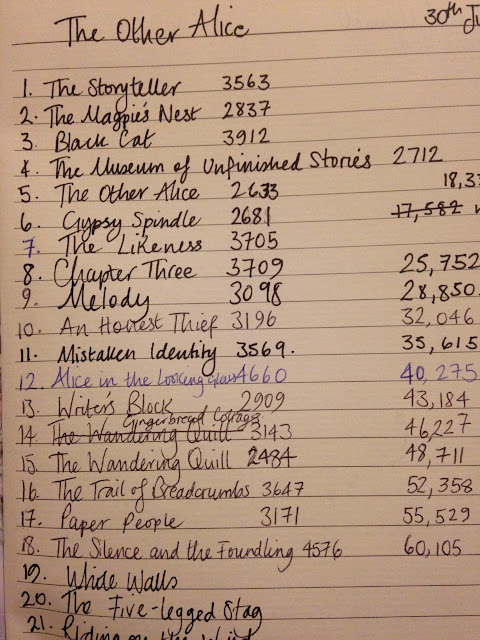 The Other Alice 30th
1. The Storyteller 3563
2. The Magpie's Nest 2837
3. Black Cat 3912
4. The Museum of Unfinished Stories 2712
5. The Other Alice 2633 18,33
6. Gypsy Spindle 2681 17,582
7. The Likeness 3705
8. Chapter Three 3709 25,752
9. Melody 3098 28,850
10. An Honest Thief 3196 32,046
11. Mistaken Identity 3569. 35,615
12. Alice in the Looking Glass 4660 40,275
13. Writer's Block 2909 43,184
Gingerbread Cottage
14. The Wandering Quill 3143 46,227
15. The Wandering Quill 2484 48,711
16. The Trail of Breadcrumbs 3647 52,358
17. Paper People 3171 55,529
18. The Silence and the Foundling 4576 60,105
19. White Walls
20. The Five-legged Stag
21. Riding on the